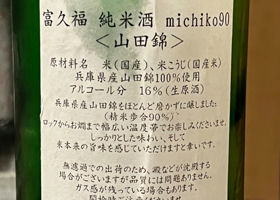 富久福 純米酒 michiko90
<山田錦>
原材料名 米(国産)、米こうじ(国産米)
兵庫県産山田錦100%使用
アルコール分 16%(生原酒)
兵庫県産山田錦をほとんど磨かずに醸しました。
(精米歩合90%)
ロックからお燗まで幅広い温度帯でお楽しみくださいませ。
しっかりとした味わい、そして
米本来の旨味を感じていただけますと幸いです。
無濾過での出荷のため、滓などが沈殿する
場合がございますが品質には問題ありません。
ガス感が残っている場合もあります。
開栓時ご注意